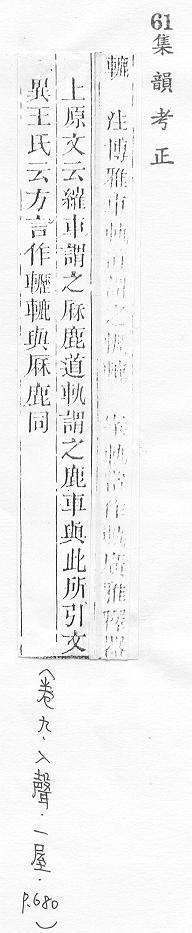 61集韻考正
轆 注博雅車軌謂之轣轆 案軌當作軌廣雅釋器
上原文云繀車謂之厤鹿道軌謂之鹿車與此所引文
異王氏云方言作轣轆與厤鹿同
(卷九·入聲·一屋·P.680)